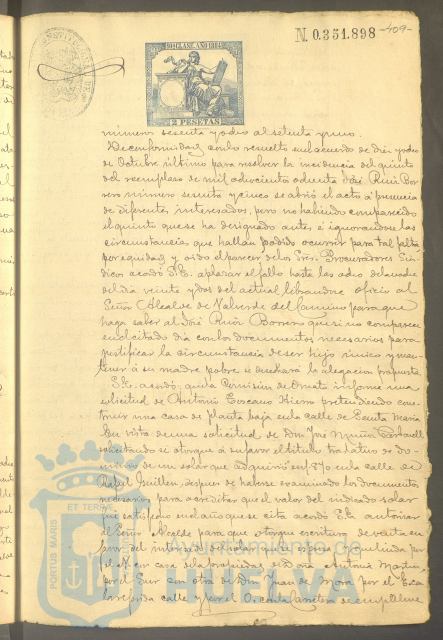 N. 0.351.898
-409-
10ª CLASE AÑO 1884
2 PESETAS
número sesenta y ocho al setenta y uno.
De conformidad con lo resuelto en el acuerdo de diez y ocho
de Octubre último para resolver la incidencia del quinto
del reemplazo de mil ochocientos ochenta José Ruiz Bor
rero número sesenta y cinco se abrió el acto a presencia
de diferentes interesados, pero no habiendo comparecido
el quinto que se ha designado antes é ignorándose las
circunstancias que hallan podido ocurrir para tal falta
por equidad y oido el parecer de los Sres. Procuradores Sín
dicos acordó S.E. aplazar el fallo hasta las ocho de la noche
del dia veinte y dos del actual librandose oficio al
Señor Alcalde de Valverde del Camino para que
haga saber al José Ruiz Borrero que si no comparece
en el citado dia con los documentos necesarios para
justificar la circunstancia de ser hijo único y man
tener á su madre pobre se desechará la alegacion propuesta
S.E. acordó que la Comisión de Ornato informe una
solicitud de Antonio Toscano Hierro pretendiendo cons
truir una casa de planta baja en la calle de Santa Maria
En vista de una solicitud de Don José
solicitando se otorgue á su favor el título traslativo de do
minio de un solar que adquirió en 1870 en la calle de
Rafael Guillen, despues de haberse examinado los documentos
necesarios para acreditar que el valor del indicado solar
fué satisfecho en el año que se cita acordó S.E. autorizar
al Señor Alcalde para que otorgue escritura de venta en
favor del interesado
el N. con casa de la propiedad de Doña Antonia Martin
por el Sur con otra de Don Juan de Mora por el E. con
la referida calle y por el O. con la carretera de
PORTUS MARIS ET TERRAE
Ayuntamiento de
HUELVA